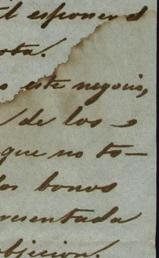 il esponer
ota.
este negocio,
de los
que no to-
los bonos
presentada
objecion.